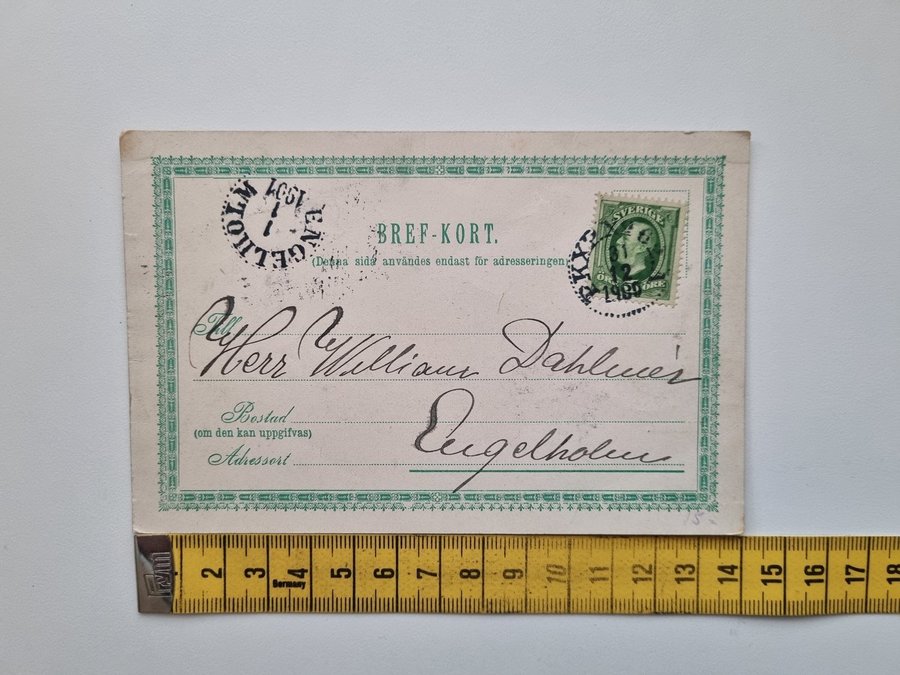 1901
1
1
ENGELHOLM
BREF-KORT.
(Denna sida användes endast för adresseringen.)
SVERIGE
31
12
1900
ÖRE
Till
Herr William Dahlmér
Bostad
(om den kan uppgifvas)
Engelholm
Adressort
15-
2 3 4 5 6 7 8 9 10 11 12 13 14 15 16 17 18
Germany